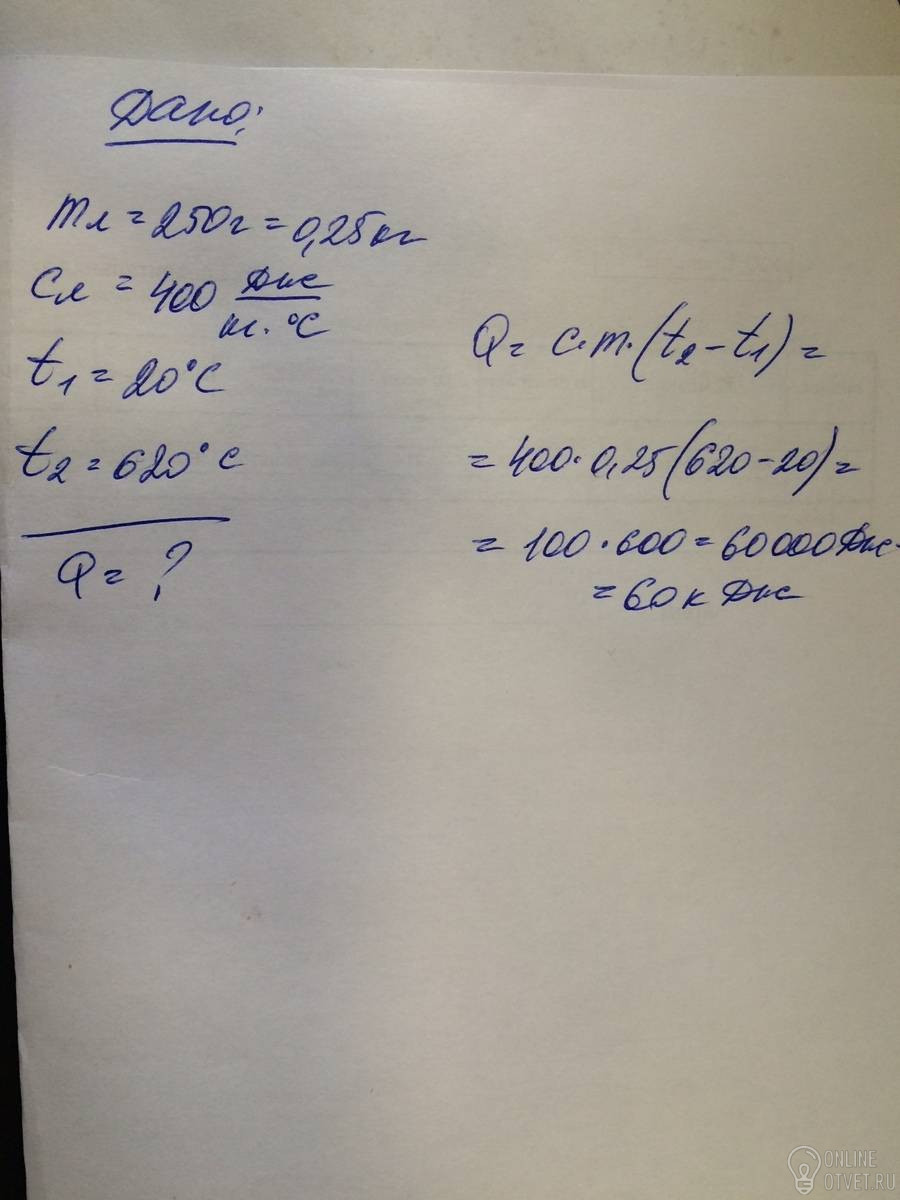 Дано:
mл = 250г = 0,25кг
Cл = 400 Дж/кг·°C
t1 = 20°C
t2 = 620°C
Q = ?
Q = c·m·(t2-t1) =
= 400·0,25(620-20) =
= 100·600 = 60000Дж=
= 60кДж
ONLINE
OTVET.RU